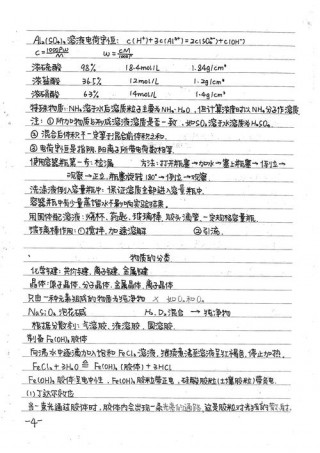 Al₂(SO₄)₃溶液电荷守恒: c(H⁺)+3c(Al³⁺)=2c(SO₄²⁻)+c(OH⁻)
c=1000ρw/M w=cM/1000ρ
浓硫酸 98% 18.4mol/L 1.84g/cm³
浓盐酸 36.5% 12mol/L 1.2g/cm³
浓硝酸 63% 14mol/L 1.4g/cm³
特殊物质: NH₃溶于水后溶质粒子主要为NH₃·H₂O, 但计算浓度时以NH₃分子作溶质
注: ①所加物质与形成溶液溶质是否一致, 如SO₃溶于水溶质为H₂SO₄
②混合后体积不一定等于混合前体积之和.
③电荷守恒是指阴、阳离子所带电荷数相等.
使用容量瓶第一步: 检漏 方法: 打开瓶塞→加水→塞上瓶塞→倒立→
观察→正立, 瓶塞旋转180°→倒立→观察.
洗涤液倒入容量瓶中: 保证溶质全部进入容量瓶中.
容量瓶中有少量蒸馏水不影响实验结果.
用固体配溶液: 烧杯、药匙、玻璃棒、胶头滴管、一定规格容量瓶.
玻璃棒作用: ①搅拌, 加速溶解 ②引流.
物质的分类
化学键: 共价键, 离子键, 金属键
晶体: 原子晶体, 分子晶体, 金属晶体, 离子晶体
只由一种元素组成的物质为纯净物 × 如O₂和O₃
Na₂SiO₃ 泡花碱 H₂、D₂混合 → 纯净物
根据分散剂: 气溶胶, 液溶胶, 固溶胶.
制备Fe(OH)₃胶体
向沸水中逐滴加入饱和FeCl₃溶液, 继续煮沸至溶液呈红褐色, 停止加热.
FeCl₃+3H₂O ≜ Fe(OH)₃(胶体)+3HCl
Fe(OH)₃胶体呈电中性, Fe(OH)₃胶粒带正电, 硅酸胶粒(土壤胶粒)带负电.
(1)丁达尔效应
当一束光通过胶体时, 胶体内会出现一条光亮的通路, 这是胶粒对光线的散射.
-4-